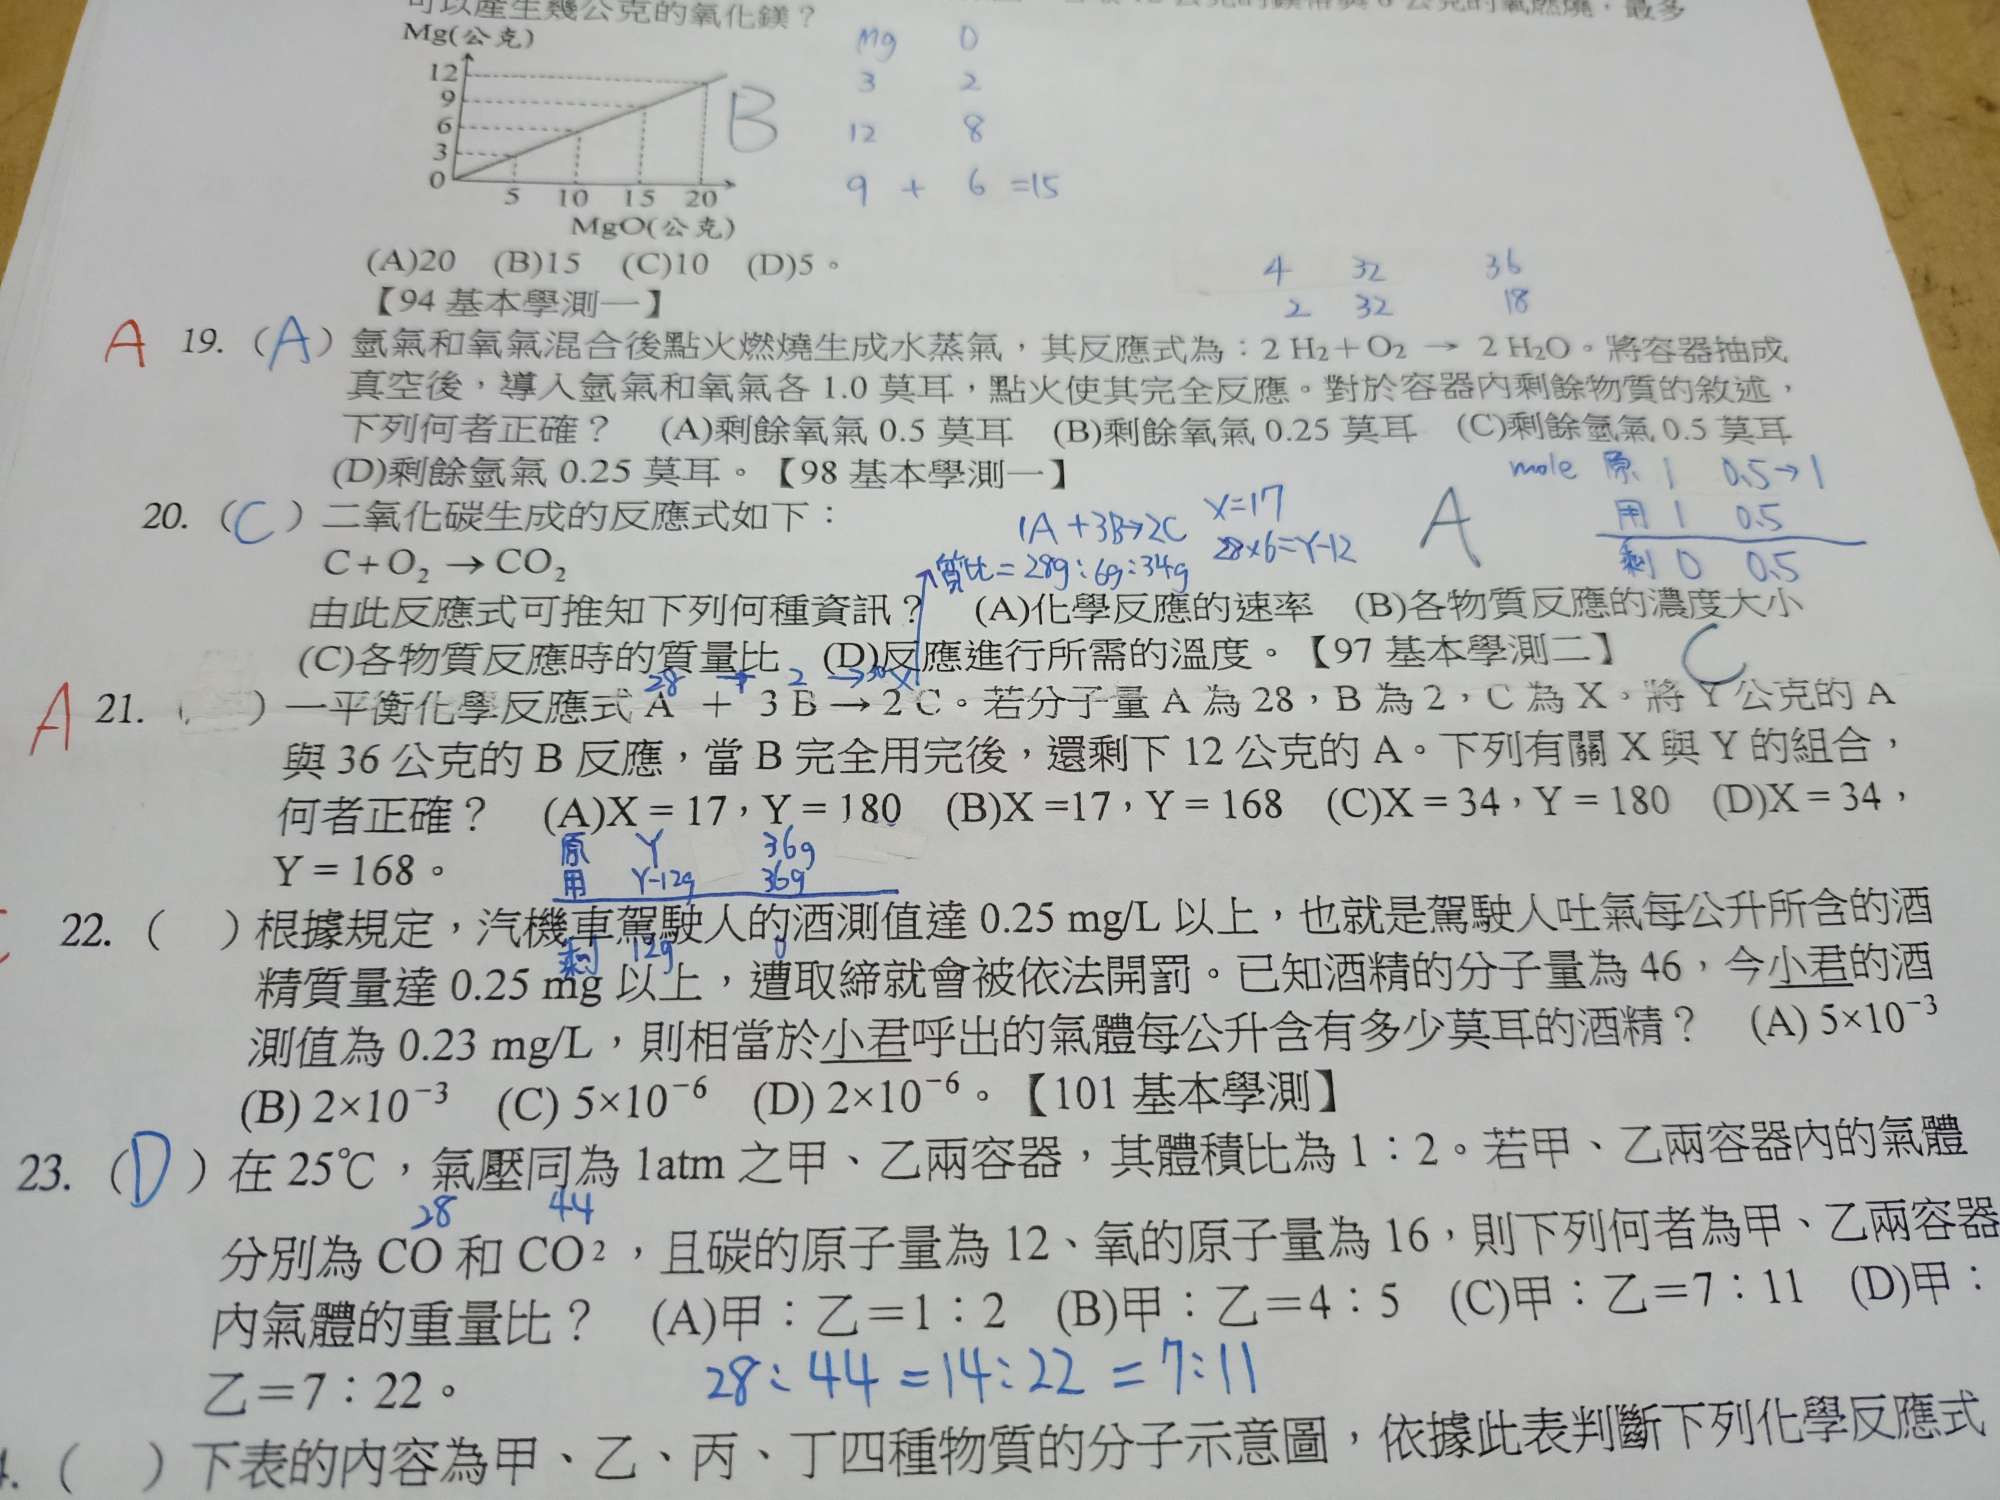 可以產生幾公克的氧化鎂？
公克的氧燃燒，最多
Mg(公克)
12
9
6
3
0
5 10 15 20
MgO(公克)
B
Mg O
3 2
12 8
9 + 6 =15
(A)20 (B)15 (C)10 (D)5。
【94 基本學測一】
4 32 36
2 32 18
A 19.（A）氫氣和氧氣混合後點火燃燒生成水蒸氣，其反應式為：2 H₂+O₂ → 2 H₂O。將容器抽成
真空後，導入氫氣和氧氣各 1.0 莫耳，點火使其完全反應。對於容器內剩餘物質的敘述，
下列何者正確？ (A)剩餘氧氣 0.5 莫耳 (B)剩餘氧氣 0.25 莫耳 (C)剩餘氫氣 0.5 莫耳
(D)剩餘氫氣 0.25 莫耳。【98 基本學測一】
mole 原 1 0.5→1
用 1 0.5
剩 0 0.5
A
20.（C）二氧化碳生成的反應式如下：
1A+3B→2C X=17
C+O₂ →CO₂
質比=28g:6g:34g 28×6=Y-12
由此反應式可推知下列何種資訊？ (A)化學反應的速率 (B)各物質反應的濃度大小
(C)各物質反應時的質量比 (D)反應進行所需的溫度。【97 基本學測二】
C
28 + 2
A 21.（ ）一平衡化學反應式 A + 3 B → 2 C。若分子量 A 為 28，B 為 2，C 為 X。將 Y 公克的 A
與 36 公克的 B 反應，當 B 完全用完後，還剩下 12 公克的 A。下列有關 X 與 Y 的組合，
何者正確？ (A)X = 17，Y = 180 (B)X =17，Y = 168 (C)X = 34，Y = 180 (D)X = 34，
Y = 168。
原 Y 36g
用 Y-12g 36g
剩 12g 0
22.（ ）根據規定，汽機車駕駛人的酒測值達 0.25 mg/L 以上，也就是駕駛人吐氣每公升所含的酒
精質量達 0.25 mg 以上，遭取締就會被依法開罰。已知酒精的分子量為 46，今小君的酒
測值為 0.23 mg/L，則相當於小君呼出的氣體每公升含有多少莫耳的酒精？ (A) 5×10⁻³
(B) 2×10⁻³ (C) 5×10⁻⁶ (D) 2×10⁻⁶。【101 基本學測】
23.（D）在 25℃，氣壓同為 1atm 之甲、乙兩容器，其體積比為 1：2。若甲、乙兩容器內的氣體
28 44
分別為 CO 和 CO₂，且碳的原子量為 12、氧的原子量為 16，則下列何者為甲、乙兩容器
內氣體的重量比？ (A)甲：乙＝1：2 (B)甲：乙＝4：5 (C)甲：乙＝7：11 (D)甲：
乙＝7：22。
28:44=14:22=7:11
4.（ ）下表的內容為甲、乙、丙、丁四種物質的分子示意圖，依據此表判斷下列化學反應式